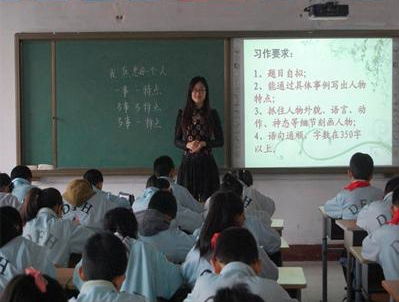 我 熟 悉的一个人
一事 — 特点
多事多特点
多事 — 特点
习作要求：
1、题目自拟；
2、能通过具体事例写出人物
特点；
3、抓住人物外貌、语言、动
作、神态等细节刻画人物；
4、语句通顺，字数在350字
以上。
DFH
DFH
DF